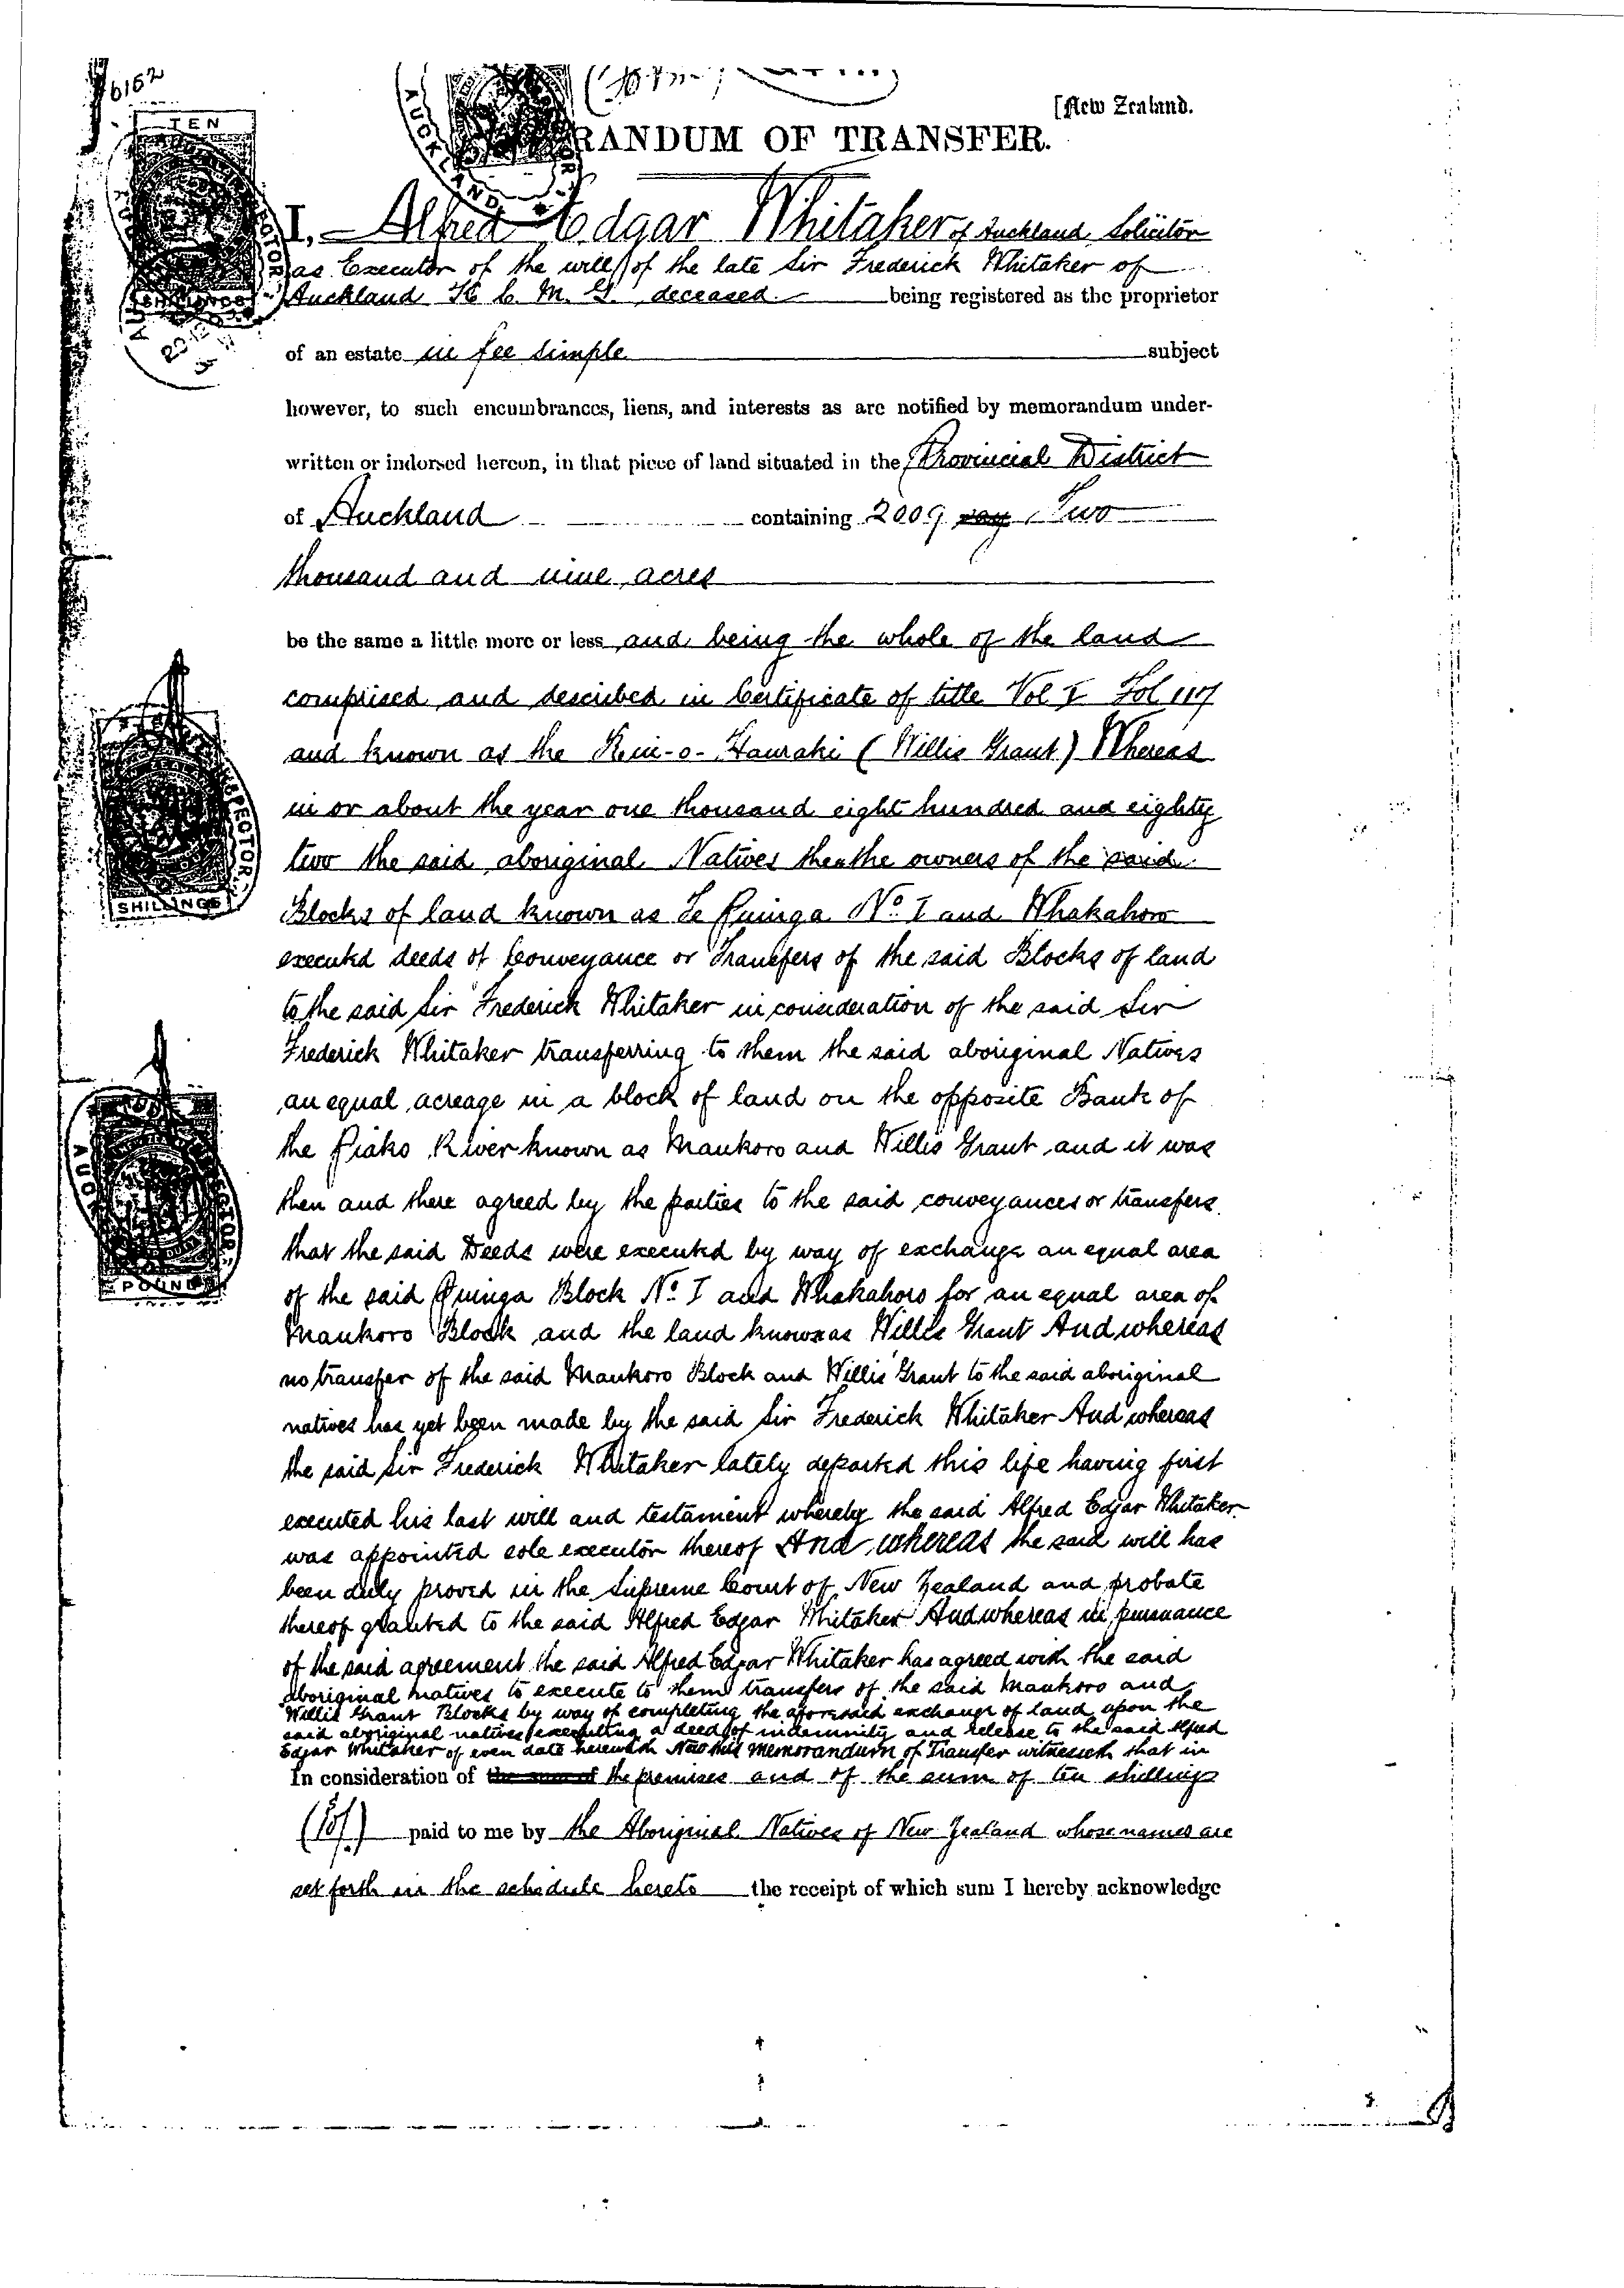 6152
[New Zealand.
RANDUM OF TRANSFER.
TEN
AUCKLAND
I, Alfred Edgar Whitaker of Auckland Solicitor
as Executor of the will of the late Sir Frederick Whitaker of
Auckland K. C. M. G. deceased. being registered as the proprietor
of an estate in fee simple subject
however, to such encumbrances, liens, and interests as are notified by memorandum under-
written or indorsed hereon, in that piece of land situated in the Provincial District
of Auckland containing 2009 Two
thousand and nine acres
be the same a little more or less and being the whole of the land
comprised and described in Certificate of title Vol I Fol 117
and known as the -o-Hauraki (Willis Grant) Whereas
in or about the year one thousand eight hundred and eighty
two the said aboriginal Natives then the owners of the said
Blocks of land known as Te Puinga No. I and Whakahoro
executed deeds of Conveyance or Transfers of the said Blocks of land
to the said Sir Frederick Whitaker in consideration of the said Sir
Frederick Whitaker transferring to them the said aboriginal Natives
an equal acreage in a block of land on the opposite Bank of
the Piako River known as Maukoro and Willis Grant and it was
then and there agreed by the parties to the said conveyances or transfers
that the said Deeds were executed by way of exchange an equal area
of the said Puinga Block No. I and Whakahoro for an equal area of
Maukoro Block and the land known as Willis Grant And whereas
no transfer of the said Maukoro Block and Willis Grant to the said aboriginal
natives has yet been made by the said Sir Frederick Whitaker And whereas
the said Sir Frederick Whitaker lately departed this life having first
executed his last will and testament whereby the said Alfred Edgar Whitaker
was appointed sole executor thereof And whereas the said will has
been duly proved in the Supreme Court of New Zealand and probate
thereof granted to the said Alfred Edgar Whitaker And whereas in pursuance
of the said agreement the said Alfred Edgar Whitaker has agreed with the said
aboriginal natives to execute to them transfers of the said Maukoro and
Willis Grant Blocks by way of completing the aforesaid exchange of land upon the
said aboriginal natives executing a deed of indemnity and release to the said Alfred
Edgar Whitaker of even date herewith Now this Memorandum of Transfer witnesseth that in
In consideration of the sum of the premises and of the sum of ten shillings
(10/) paid to me by the Aboriginal Natives of New Zealand whose names are
set forth in the schedule hereto the receipt of which sum I hereby acknowledge
SHILLINGS
INSPECTOR
POUND